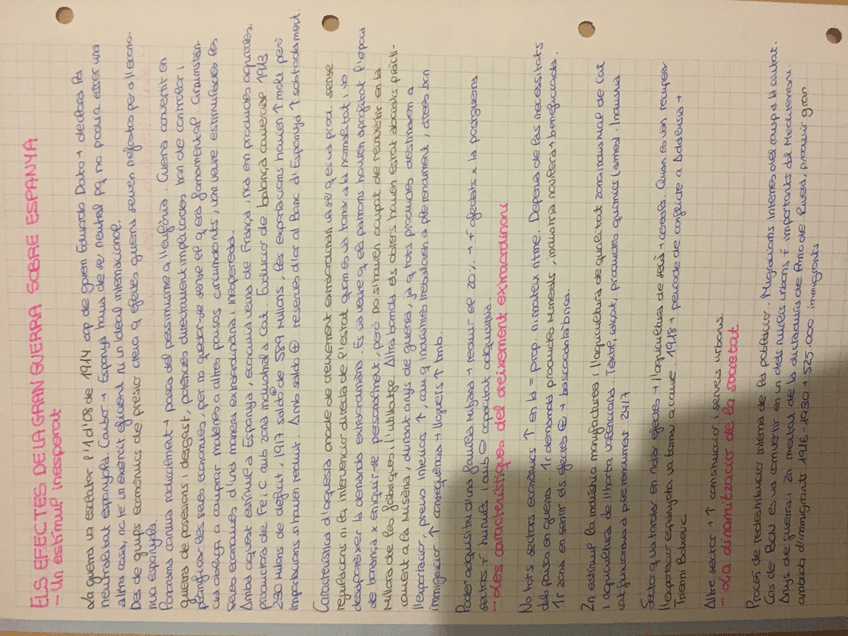 ELS EFECTES DE LA GRAN GUERRA SOBRE ESPANYA
- Un estímul inesperat
La guerra va esclatar l'1 d'08 de 1914 cap de govern Eduardo Dato → declara la
neutralitat espanyola. Causa → Espanya havia de ser neutral pq no podia esser una
altra cosa, no té un exèrcit eficient ni un ideal internacional.
Des de grups econòmics de pressió creuen q efectes guerra seuen nefastos per a l'econo-
mia espanyola.
Panorama canvia radicalment → passa del pessimisme a l'eufòria. Guerra convertit en
guerra de posicions i desgast, potències directament implicades han de controlar i
planificar les seves economies, per no quedar-se sense el q era fonamental. Circumstàn-
cia obliga a comprar matèries a altres països circumdants, van veure estimulades les
seves economies d'una manera extraordinària i inesperada.
Amb aquest estímul a Espanya, economia veïna de França, rica en productes agrícoles,
productora de Fe i C amb zona industrial a Cat. Evolució de balança comercial 1913
230 milions de dèficit, 1917 saldo de 589 milions, les exportacions havien ↑ molt però
importacions s'havien reduït. Amb saldo ⊕ reserves d'or al Banc d'Espanya ↑ sobtadament.
Característica d'aquesta onada de creixement extraordinari va ser q es va prod. sense
regulacions ni la intervenció directa de l'estat quan es va tornar a la normalitat i va
desaparèixer la demanda extraordinària. Es va veure q els patrons havien aprofitat l'època
de bonança x enriquir-se personalment, però no s'havien ocupat de reinvertir en la
millora de les fàbriques i l'utillatge. Altra banda els obrers havien estat abocats pràcti-
cament a la misèria, durant anys de guerra, ja q tots productes destinaven a
l'exportació → preus interiors ↑, com q indústries treballaven a ple rendiment, atreien bon
immigració ↑ conseqüència → lloguers ↑ tmb.
Poder adquisitiu d'una família mitjana → reduir el 20% → + afectats x la postguerra
sectors + humils i amb ⊖ capacitat adquisitiva.
- Les característiques del creixement extraordinari
No tots sectors econòmics ↑ en la = prop. ni mateix ritme. Depenia de les necessitats
dels països en guerra. 1r demanda productes minerals, indústria naviliera beneficiada.
1r zona en sentir els efectes ⊕ → basca cantàbrica.
2n estímul la indústria manufacturera i l'agricultura de qualitat zona industrial de Cat
i agricultura de l'horta valenciana. Tèxtil, calçat, productes químics (armes). Indústria
cat funcionava a ple rendiment 24/7
Sector q va tardar en notar efectes → l'agricultura de secà → cereals. Quan es van recuper
l'exportació espanyola va tornar a caure. 1918 → període de conflicte a Andalusia →
Trienni Bolxevic
Altre sector → ↑ construcció i serveis urbans.
- La dinamització de la societat
Procés de redistribució interna de la població. Migracions internes del camp a la ciutat.
Cas de BCN es va convertir en un dels nuclis urbans + importants del Mediterrani.
Anys de guerra i 2n meitat de la dictadura de Primo de Rivera, produir gran
arribada d'immigrants 1916-1930 → 325.000 immigrants